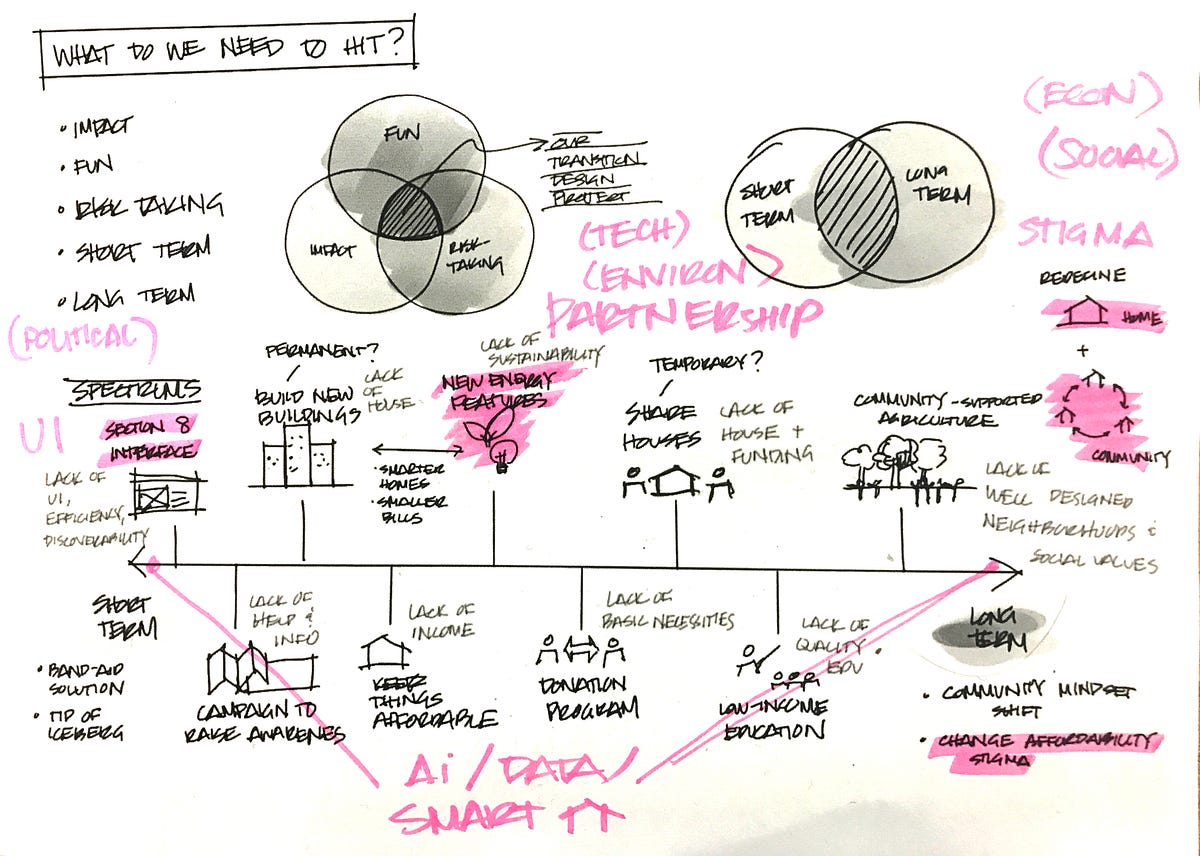 WHAT DO WE NEED TO HIT?
• IMPACT
• FUN
• RISK TAKING
• SHORT TERM
• LONG TERM
FUN
IMPACT
RISK-
TAKING
OUR
TRANSITION
DESIGN
PROJECT
SHORT
TERM
LONG
TERM
(ECON)
(SOCIAL)
STIGMA
(TECH)
(ENVIRON)
PARTNERSHIP
(POLITICAL)
UI
REDEFINE
HOME
+
COMMUNITY
SPECTRUMS
SECTION 8
INTERFACE
LACK OF
UI,
EFFICIENCY,
DISCOVERABILITY
PERMANENT?
BUILD NEW
BUILDINGS
LACK
OF
HOUSE
• SMARTER
HOMES
• SMALLER
BILLS
LACK OF
SUSTAINABILITY
NEW ENERGY
FEATURES
TEMPORARY?
SHARE
HOUSES
LACK OF
HOUSE +
FUNDING
COMMUNITY-SUPPORTED
AGRICULTURE
LACK OF
WELL DESIGNED
NEIGHBORHOODS &
SOCIAL VALUES
SHORT
TERM
• BAND-AID
SOLUTION
• TIP OF
ICEBERG
LACK OF
HELP &
INFO
CAMPAIGN TO
RAISE AWARENES
LACK OF
INCOME
KEEP
THINGS
AFFORDABLE
LACK OF
BASIC NECESSITIES
DONATION
PROGRAM
LACK OF
QUALITY
EDU
LOW-INCOME
EDUCATION
LONG
TERM
• COMMUNITY MINDSET
SHIFT
• CHANGE AFFORDABILITY
STIGMA
Ai/DATA/
SMART